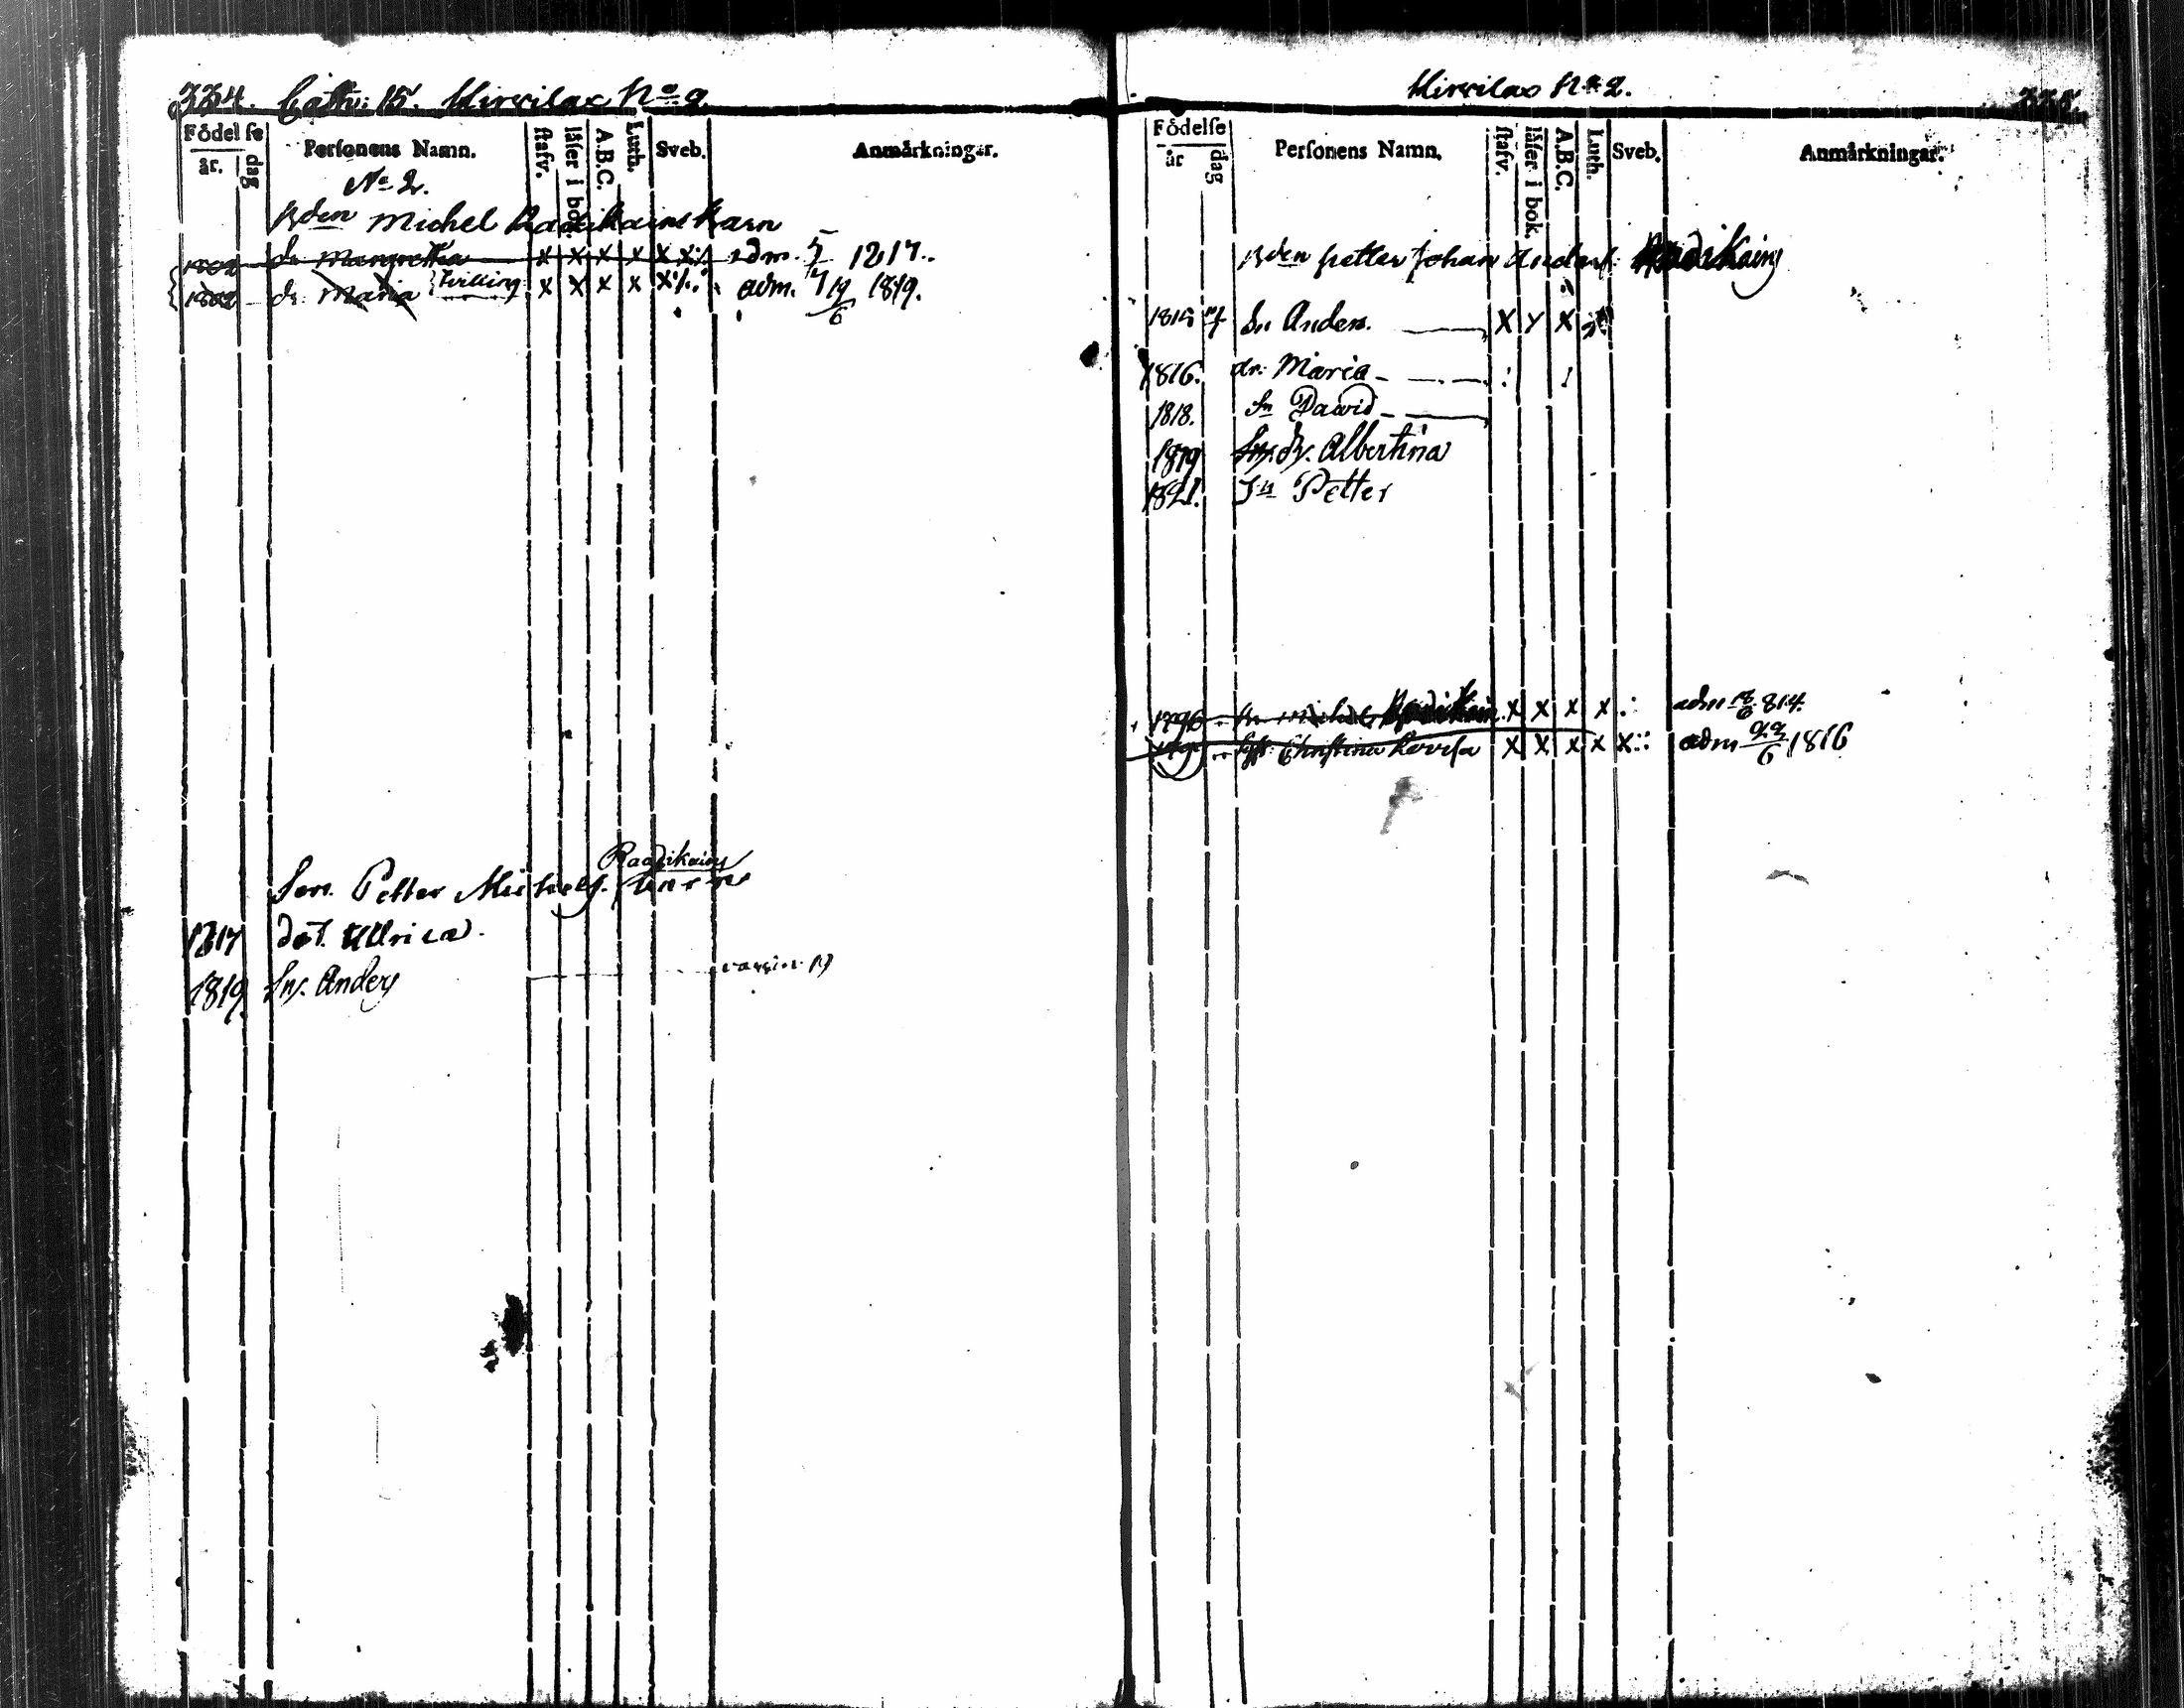 334. Cathr: 15. Kirxilax No 2
Födelse
år.
dag
Personens Namn.
stafv.
läser i bok.
A.B.C.
Luth.
Sveb.
Anmärkningar.
No 2.
Bden Michel Raadikains Barn
1802 dr Margretha x x x x x adm. 1817.
1802 dr. Maria Tvilling x x x x x adm. 19/6 1819.
Raadikains
Son. Petter Michels.
1817 dot. Ullrica.
1819 Sn. Anders
Kirxilax No 2.
335.
Födelse
år
dag
Personens Namn.
stafv.
läser i bok.
A.B.C.
Luth.
Sveb.
Anmärkningar.
Bden Petter Johan Anders. Raadikains
1815 Sn Anders. x x x
1816. dr. Maria
1818. Sn David
1819 dr. Albertina
1821. Sn Petter
1796 x x x x adm 814.
Christina Lovisa x x x x x adm 22/6 1816